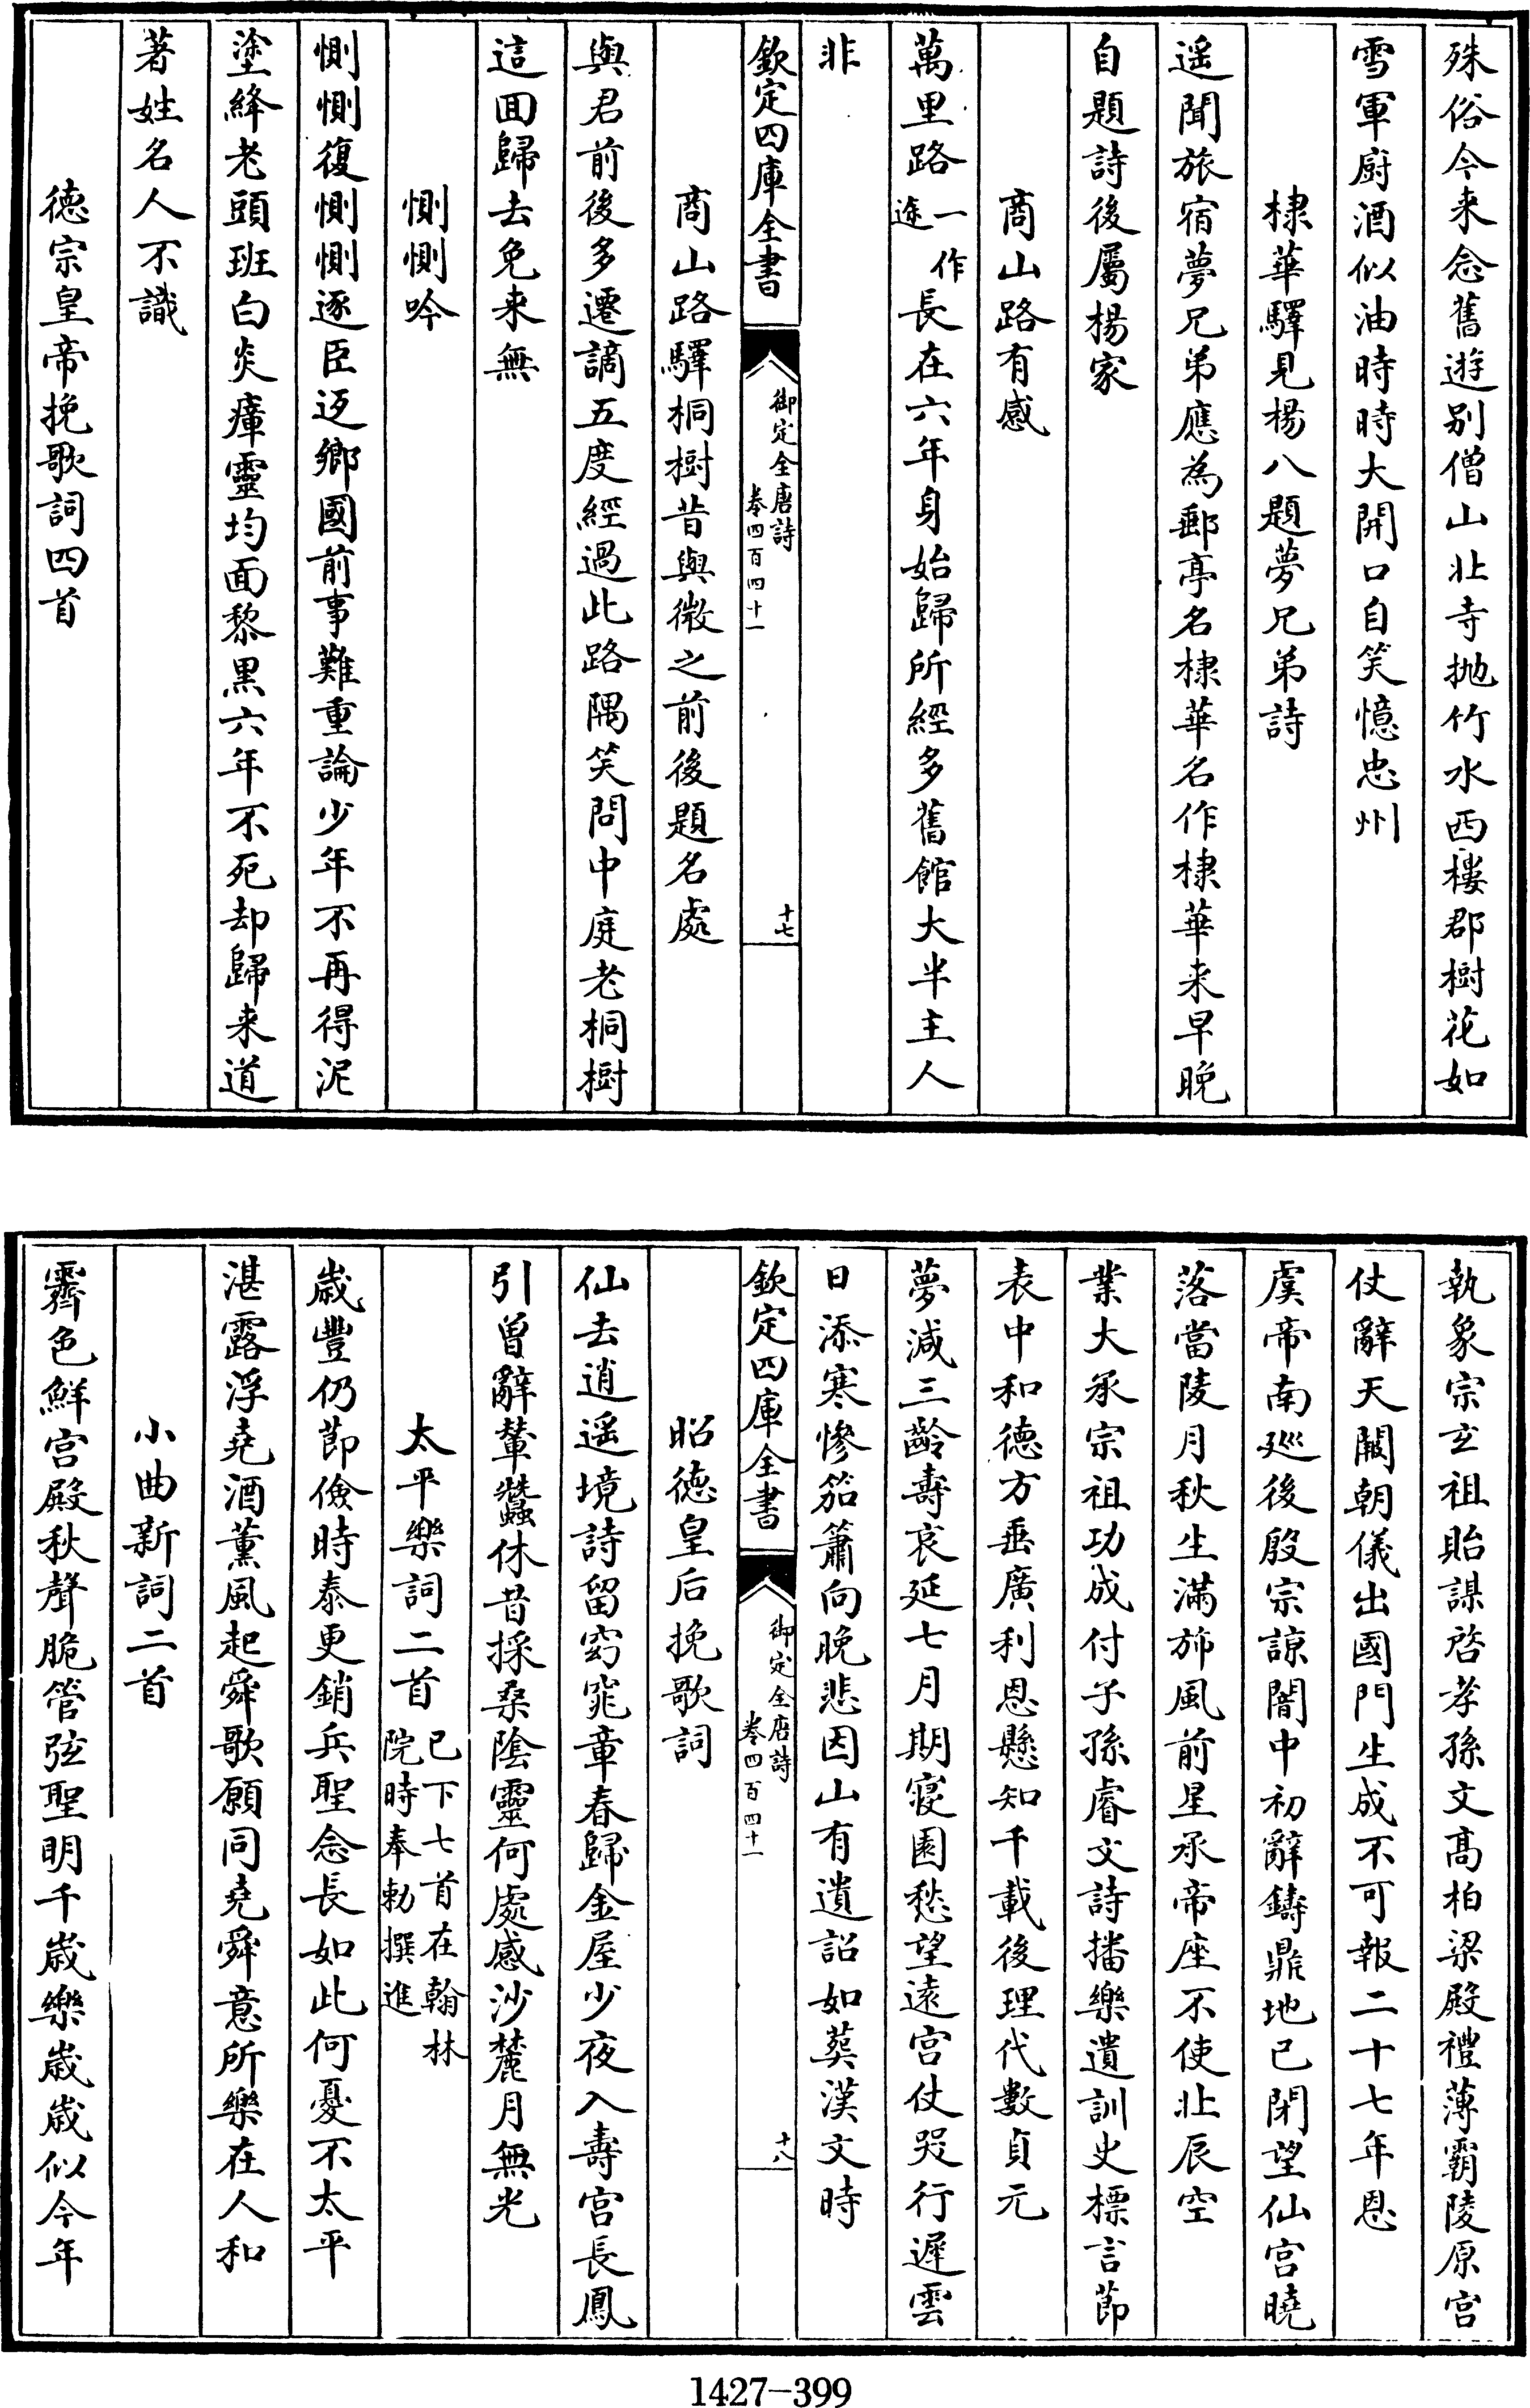 殊俗今来念舊遊别僧山北寺抛竹水西樓郡樹花如
雪軍厨酒似油時時大開口自笑憶忠州
棣華驛見楊八題夢兄弟詩
遥聞旅宿夢兄弟應為郵亭名棣華名作棣華来早晚
自題詩後屬楊家
商山路有感
萬里路一作途長在六年身始歸所經多舊館大半主人
非
欽定四庫全書
御定全唐詩
卷四百四十一
十七
商山路驛桐樹昔與微之前後題名處
與君前後多遷謫五度經過此路隅笑問中庭老桐樹
這囬歸去免来無
惻惻吟
惻惻復惻惻逐臣返鄉國前事難重論少年不再得泥
塗絳老頭班白炎瘴靈均面黎黒六年不死却歸来道
著姓名人不識
徳宗皇帝挽歌詞四首
執象宗玄祖貽謀啓孝孫文髙柏梁殿禮薄霸陵原宫
仗辭天闕朝儀出國門生成不可報二十七年恩
虞帝南廵後殷宗諒闇中初辭鑄鼎地已閉望仙宫曉
落當陵月秋生滿旆風前星承帝座不使北辰空
業大承宗祖功成付子孫睿文詩播樂遺訓史標言節
表中和德方垂廣利恩懸知千載後理代數貞元
夢減三齡壽哀延七月期寝園愁望遠宫仗哭行遲雲
日添寒慘笳簫向晚悲因山有遺詔如葬漢文時
欽定四庫全書
御定全唐詩
卷四百四十一
十八
昭徳皇后挽歌詞
仙去逍遥境詩留窈窕章春歸金屋少夜入壽宫長鳳
引曾辭輦蠶休昔採桑陰靈何處感沙麓月無光
太平樂詞二首已下七首在翰林院時奉勅撰進
歳豐仍節儉時泰更銷兵聖念長如此何憂不太平
湛露浮堯酒薰風起舜歌願同堯舜意所樂在人和
小曲新詞二首
霽色鮮宫殿秋聲脆管弦聖明千歳樂歳歳似今年
1427-399